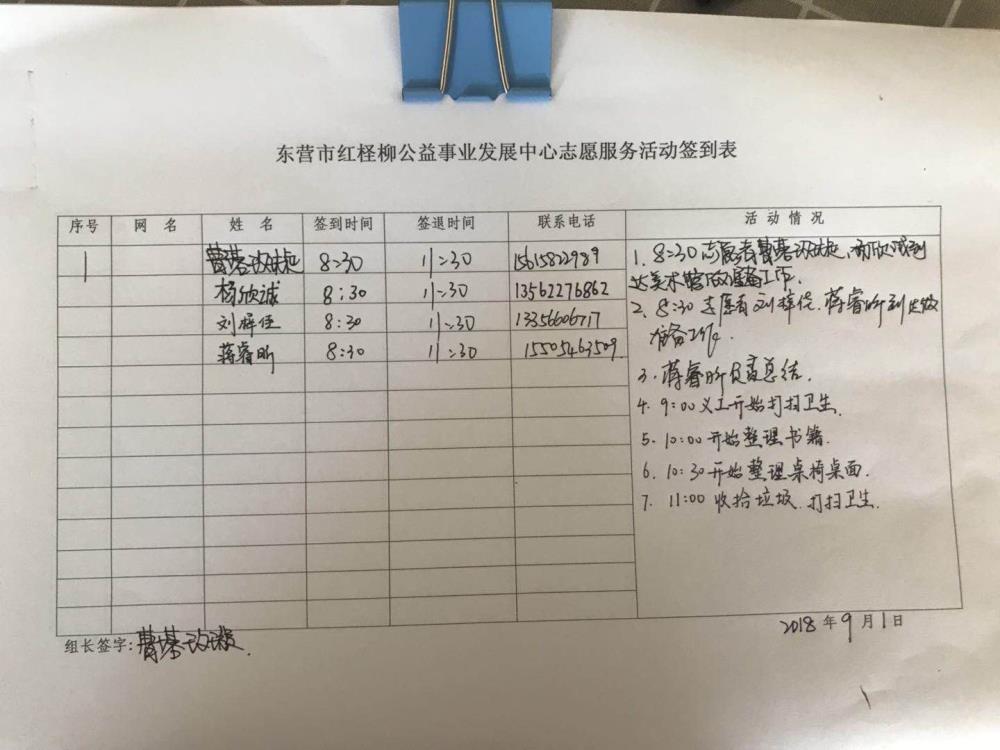 东营市红柽柳公益事业发展中心志愿服务活动签到表
序号 网名 姓名 签到时间 签退时间 联系电话 活动情况
1 8:30 11:30 15615822989
杨欣诚 8:30 11:30 13562276862
刘梓佳 8:30 11:30 13356606717
蒋睿昕 8:30 11:30 15505463509
1. 8:30 志愿者
达美术馆做准备工作.
2. 8:30 志愿者刘梓佳.蒋睿昕到达做
准备工作.
3. 蒋睿昕负责总结.
4. 9:00 义工开始打扫卫生.
5. 10:00 开始整理书籍.
6. 10:30 开始整理桌椅桌面.
7. 11:00 收拾垃圾.打扫卫生.
组长签字:
2018年9月1日